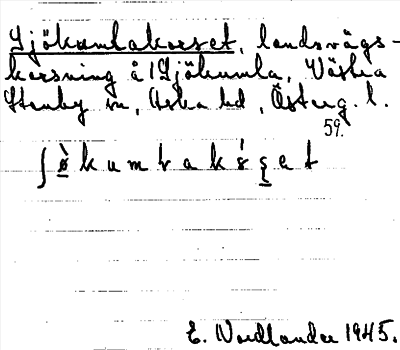 Sjökumlakorset, landsvägs-
korsning å 1 Sjökumla, Västra
Stenby sn, Aska hd, Österg. l.
59.
ʃø̀kumrakșșet
E. Nordlander 1945.